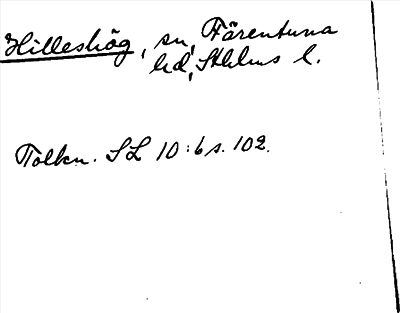 Hilleshög, sn, Färentuna
hd, Sthlms l.
Tolkn. SL 10:6 s. 102.